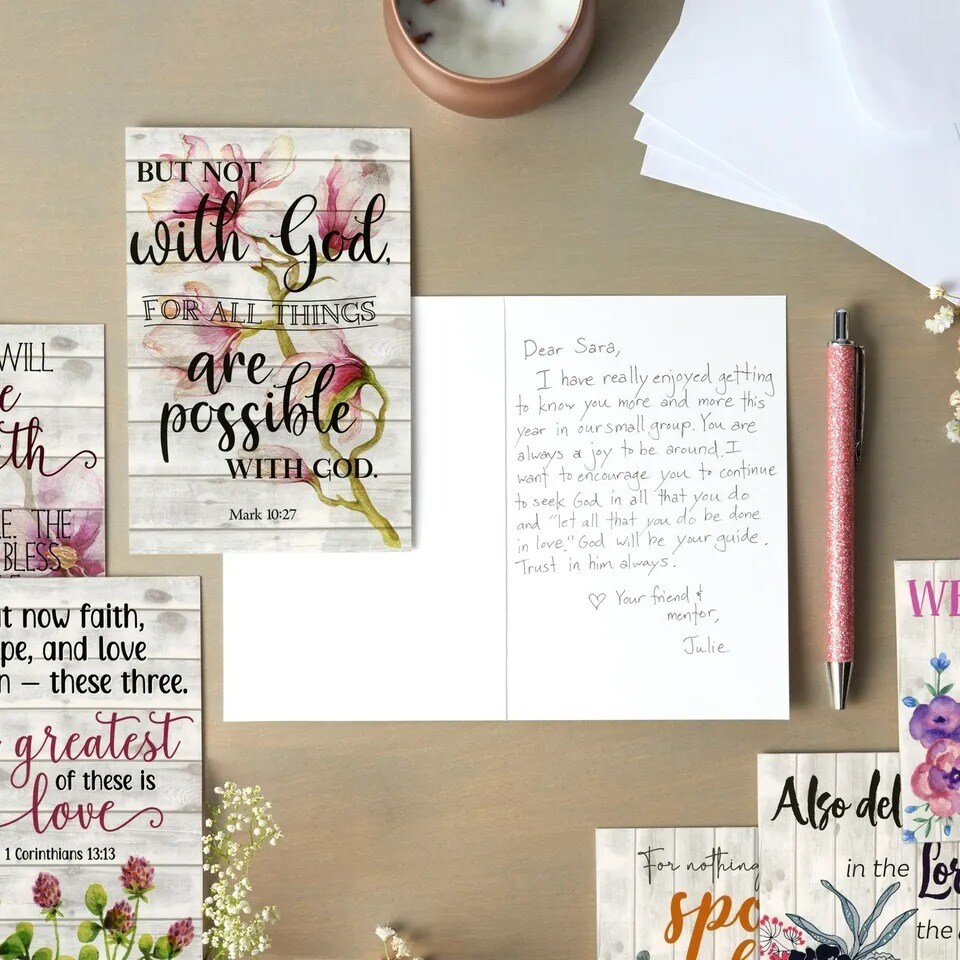 BUT NOT
with God,
FOR ALL THINGS
are
possible
WITH GOD.
Mark 10:27
WILL
THE
BLESS
now faith,
and love
— these three.
greatest
of these is
love
1 Corinthians 13:13
Dear Sara,
I have really enjoyed getting
to know you more and more this
year in our small group. You are
always a joy to be around. I
want to encourage you to continue
to seek God in all that you do
and "let all that you do be done
in love." God will be your guide.
Trust in him always.
♡ Your friend &
mentor,
Julie
For nothing
Also del
in the Lor
the